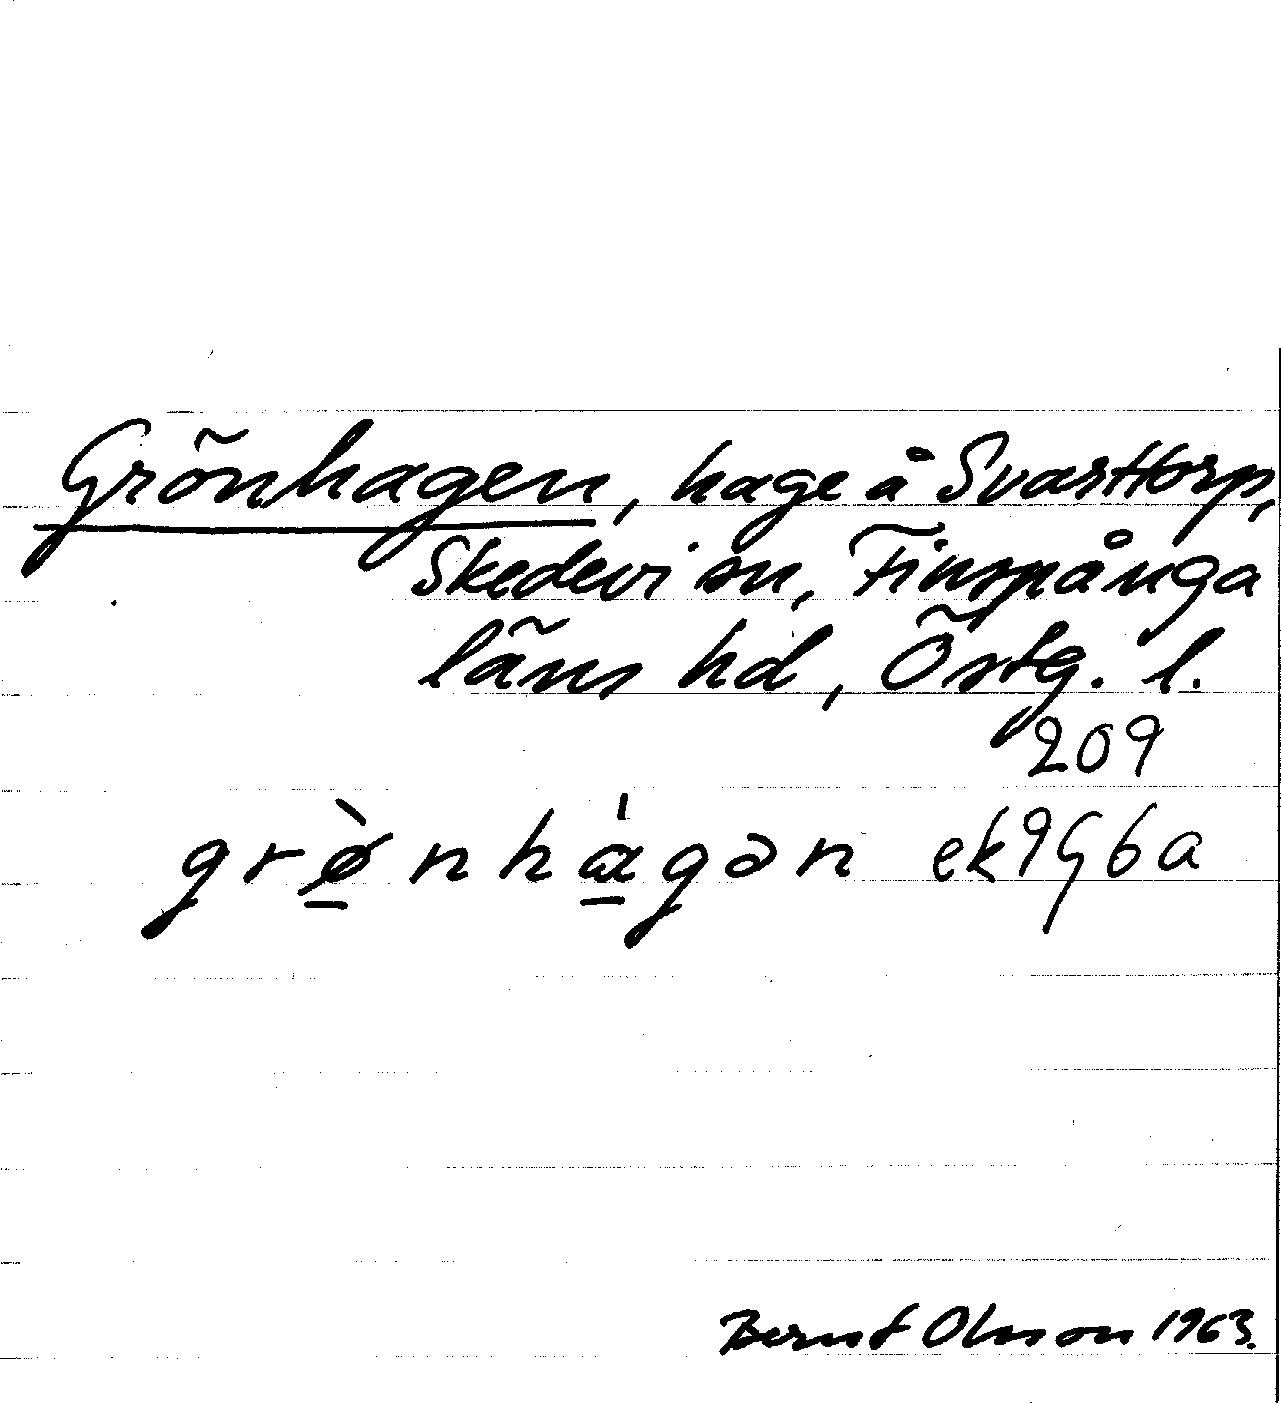 Grönhagen, hage å Svarttorp,
Skedevi sn, Finspånga
läns hd, Östg. l.
209
grø̀nhàgən ek9G6a
Bernt Olsson 1963.